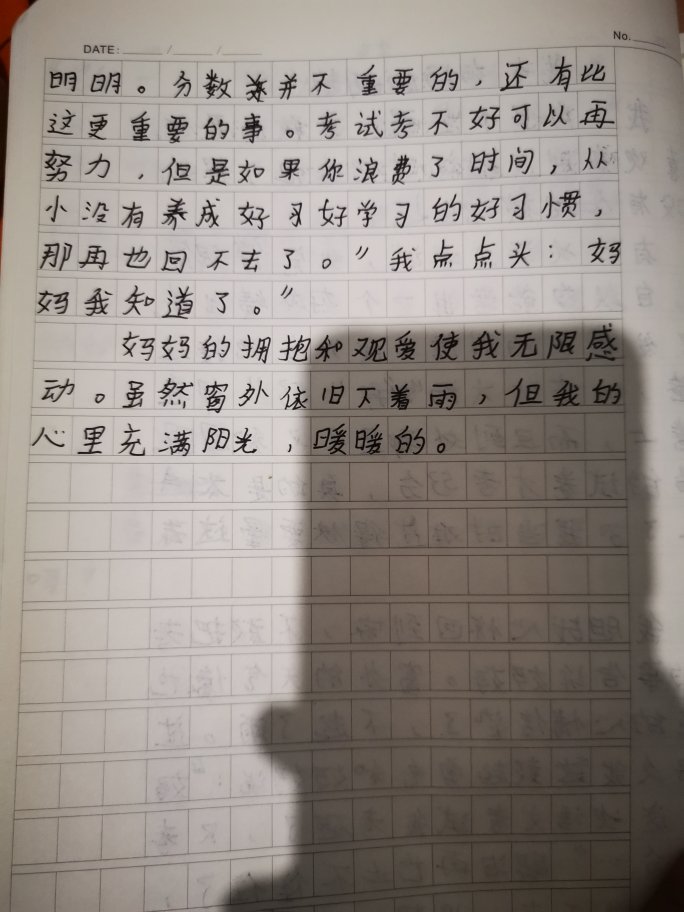 DATE: / /
No.
明明。分数并不重要的，还有比
这更重要的事。考试考不好可以再
努力，但是如果你浪费了时间，从
小没有养成好习好学习的好习惯，
那再也回不去了。”我点点头：妈
妈我知道了。”
妈妈的拥抱和观爱使我无限感
动。虽然窗外依旧下着雨，但我的
心里充满阳光，暖暖的。